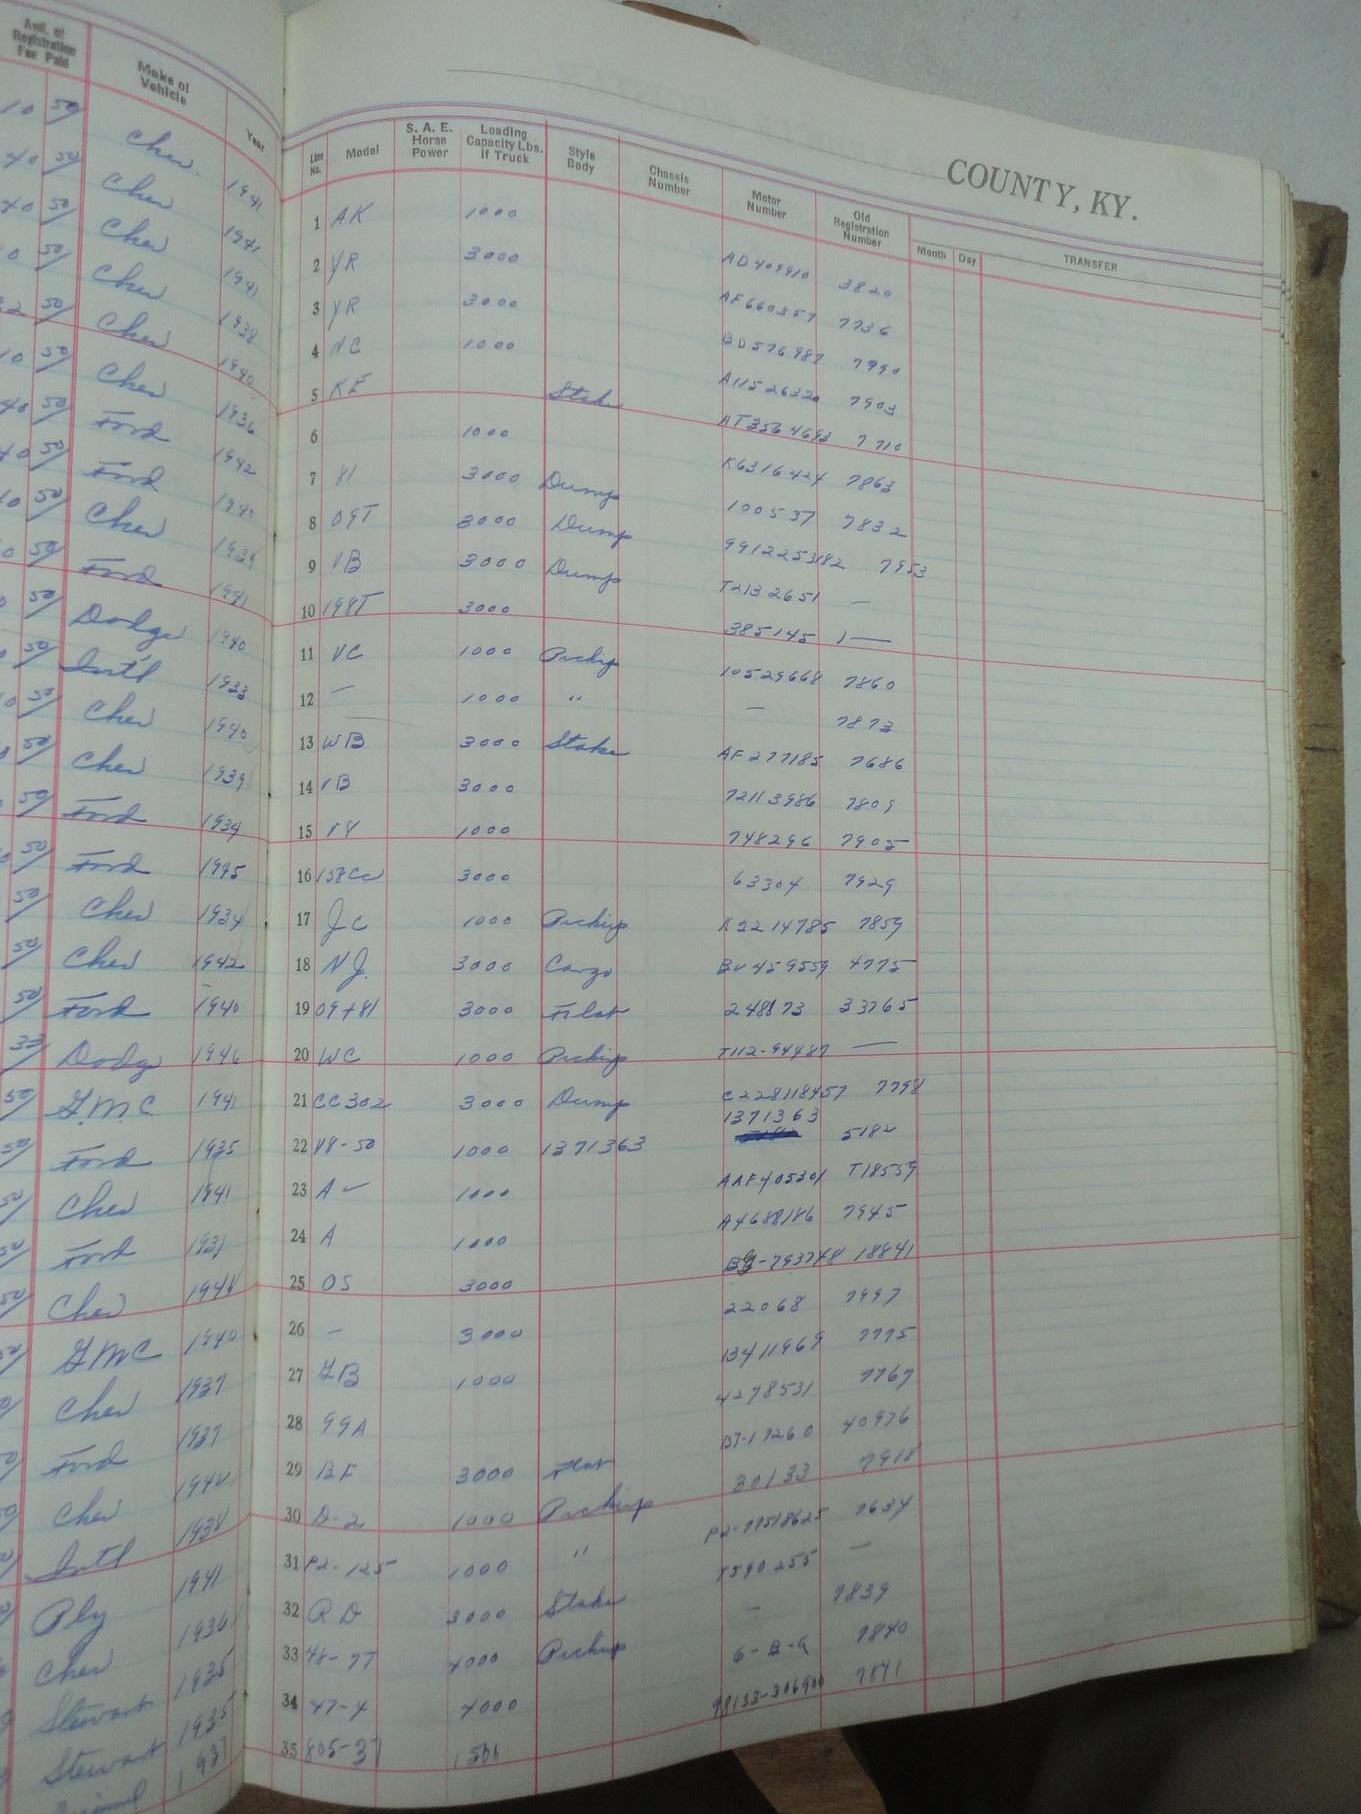 COUNTY, KY.
Amt. of Registration Fee Paid Make of Vehicle Year Line No. Model S. A. E. Horse Power Loading Capacity Lbs. if Truck Style Body Chassis Number Motor Number Old Registration Number Month Day TRANSFER
10 50 Chev. 1941 1 AK 1000 AD409910 3820
40 50 Chev 1941 2 YR 3000 AF660357 7736
40 50 Chev 1941 3 YR 3000 BD576987 7990
10 50 Chev 1938 4 NC 1000 A1152632 7903
50 Chev 1940 5 KF Stake AT3564693 7710
10 50 Chev 1936 6 1000 K6316424 7863
40 50 Ford 1942 7 81 3000 Dump 100537 7832
40 50 Ford 1940 8 09T 3000 Dump 9912253182 7953
10 50 Chev 1939 9 VB 3000 Dump T2132651 —
50 Ford 1941 10 198T 3000 385145 —
50 Dodge 1940 11 VC 1000 Pickup 10529668 7860
50 Int'l 1933 12 — 1000 " — 7873
50 Chev 1940 13 WB 3000 Stake AF277185 7686
50 Chev 1939 14 VB 3000 72113986 7809
50 Ford 1934 15 V8 1000 748296 7905
50 Ford 1945 16 158Cw 3000 63304 7929
50 Chev 1934 17 JC 1000 Pickup K2214785 7859
50 Chev 1942 18 NJ. 3000 Cargo BV459559 4775
50 Ford 1940 19 09+81 3000 Flat 248873 33765
33 Dodge 1946 20 WC 1000 Pickup T112-94487 —
50 G.M.C. 1941 21 CC302 3000 Dump C228118457 7798
50 Ford 1935 22 V8-50 1000 1371363 1371363 5182
50 Chev 1941 23 A 1000 AAF405301 T18559
50 Ford 1931 24 A 1000 A4688186 7945
50 Chev 25 OS 3000 793748 18841
50 GMC 1940 26 — 3000 22068 7997
Chev 1937 27 GB 1000 13411969 7775
Ford 1937 28 99A 4278531 7767
Chev 29 BF 3000 Flat BJ-17260 40976
Int'l 1938 30 D-2 1000 Pickup 30133 7918
Ply 1941 31 P2-125 1000 " P2-77518625 7634
Chev 1936 32 RD 3000 Stake T590255 —
Stewart 1935 33 48-7T 4000 Pickup — 7839
Stewart 1935 34 47-4 4000 6-B-9 7840
1937 35 805-37 1500 98133-306900 7841